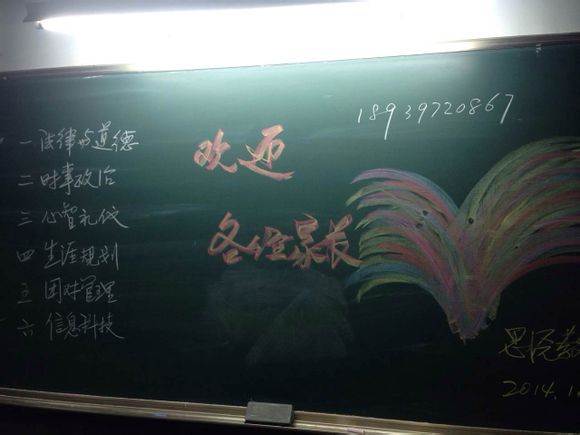 18939720867
一 法律与道德
二 时事政治
三 心智礼仪
四 生涯规划
五 团队管理
六 信息科技
欢迎
各位家长
2014.1